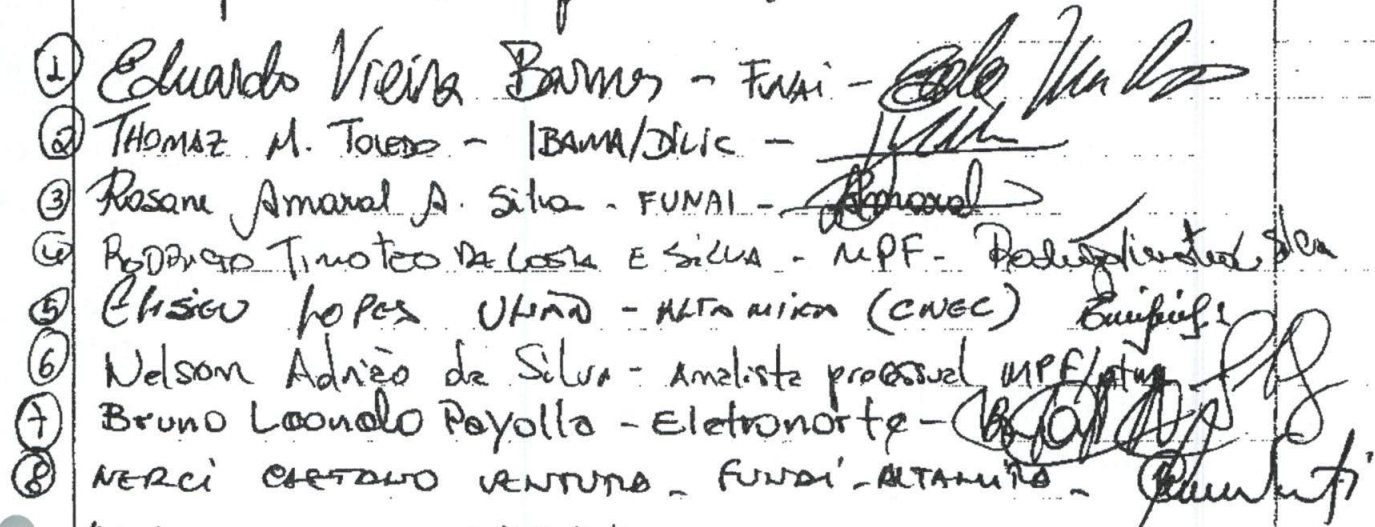 1 Eduardo Vieira Barnes - FUNAI -
2 THOMAZ M. TOLEDO - IBAMA/DILIC -
3 Rosane Amaral A. Silva - FUNAI - Amaral
4 RODRIGO TIMOTEO DA COSTA E SILVA - MPF - Rodrigo Timoteo Silva
5 ELISEU LOPES - ALTAMIRA (CNEC)
6 Nelson Adrião da Silva - Analista processual MPF/
7 Bruno Leonardo Payolla - Eletronorte -
8 NERCI CAETANO VENTURA - FUNAI - ALTAMIRA -